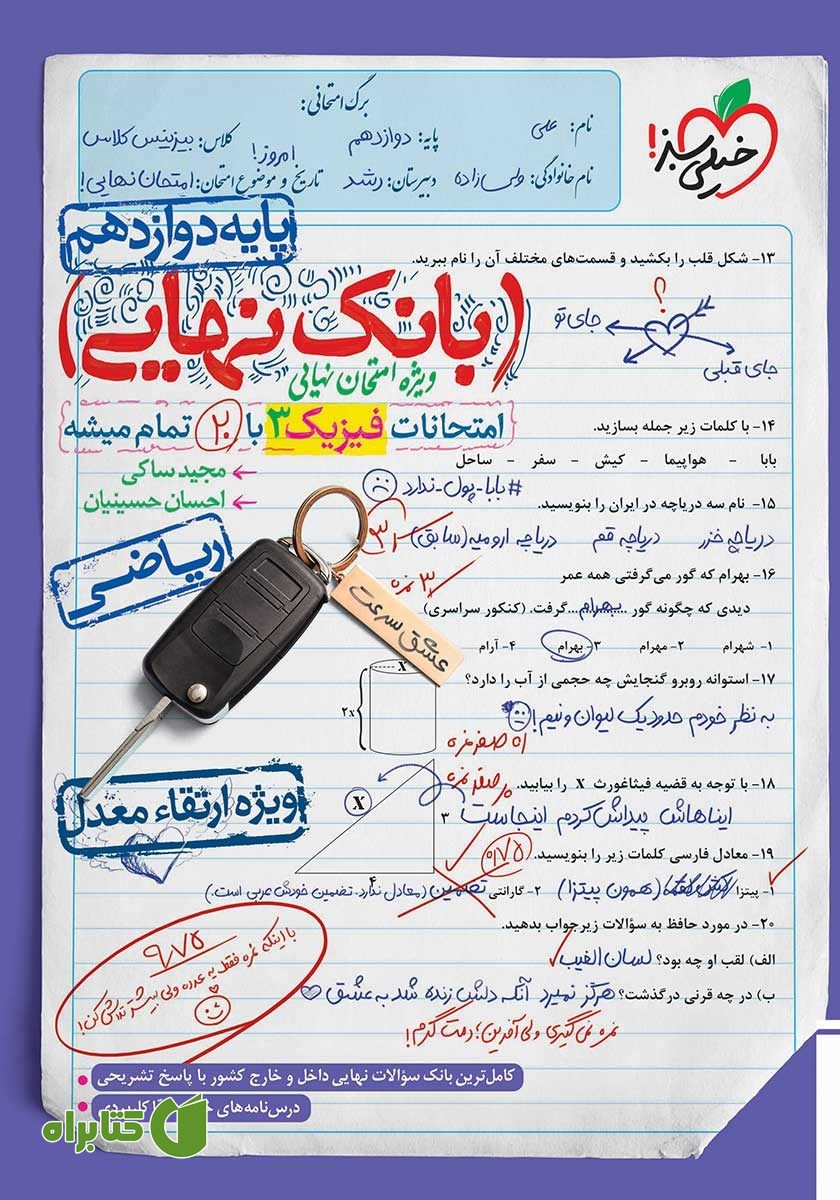 خیلی سبز!
برگ امتحانی:
نام: علی
پایه: دوازدهم
کلاس: بیزینس کلاس
نام خانوادگی: ولی زاده
دبیرستان: رشد
تاریخ و موضوع امتحان: امتحان نهایی!
امروز!
پایه دوازدهم
(بانک نهایی)
ویژه امتحان نهایی
امتحانات فیزیک ۳ با ۲۰ تمام میشه
مجید ساکی
احسان حسینیان
ریاضی
ویژه ارتقاء معدل
۱۳- شکل قلب را بکشید و قسمت‌های مختلف آن را نام ببرید.
؟
جای تو
جای قبلی
۱۴- با کلمات زیر جمله بسازید.
بابا - هواپیما - کیش - سفر - ساحل
#بابا_پول_ندارد
۱۵- نام سه دریاچه در ایران را بنویسید.
دریاچه خزر دریاچه قم دریاچه ارومیه (سابق)
۱۶- بهرام که گور می‌گرفتی همه عمر
۳ نمره
دیدی که چگونه گور ...بهرام... گرفت. (کنکور سراسری)
۱- شهرام ۲- مهرام ۳- بهرام ۴- آرام
عشق سرعت
۱۷- استوانه روبرو گنجایش چه حجمی از آب را دارد؟
X
۲x
به نظر خودم حدود یک لیوان و نیم!
اه صفر نمره
۱۸- با توجه به قضیه فیثاغورث X را بیابید.
صفر نمره
X
۳
۴
ایناهاش پیداش کردم اینجاست
۱۹- معادل فارسی کلمات زیر را بنویسید.
۰/۷۵
۱- پیتزا (همون پیتزا) ۲- گارانتی تضمین (معادل ندارد. تضمین خودش عربی است.)
۲۰- در مورد حافظ به سؤالات زیر جواب بدهید.
الف) لقب او چه بود؟ لسان الغیب
ب) در چه قرنی درگذشت؟ هرگز نمیرد آنکه دلش زنده شد به عشق
نمره نمی‌گیری ولی آفرین؛ دمت گرم!
۹/۷۵
با اینکه نمره فقط یه عدده ولی بیشتر تلاش کن!
کامل‌ترین بانک سؤالات نهایی داخل و خارج کشور با پاسخ تشریحی
درس‌نامه‌های
کتابراه